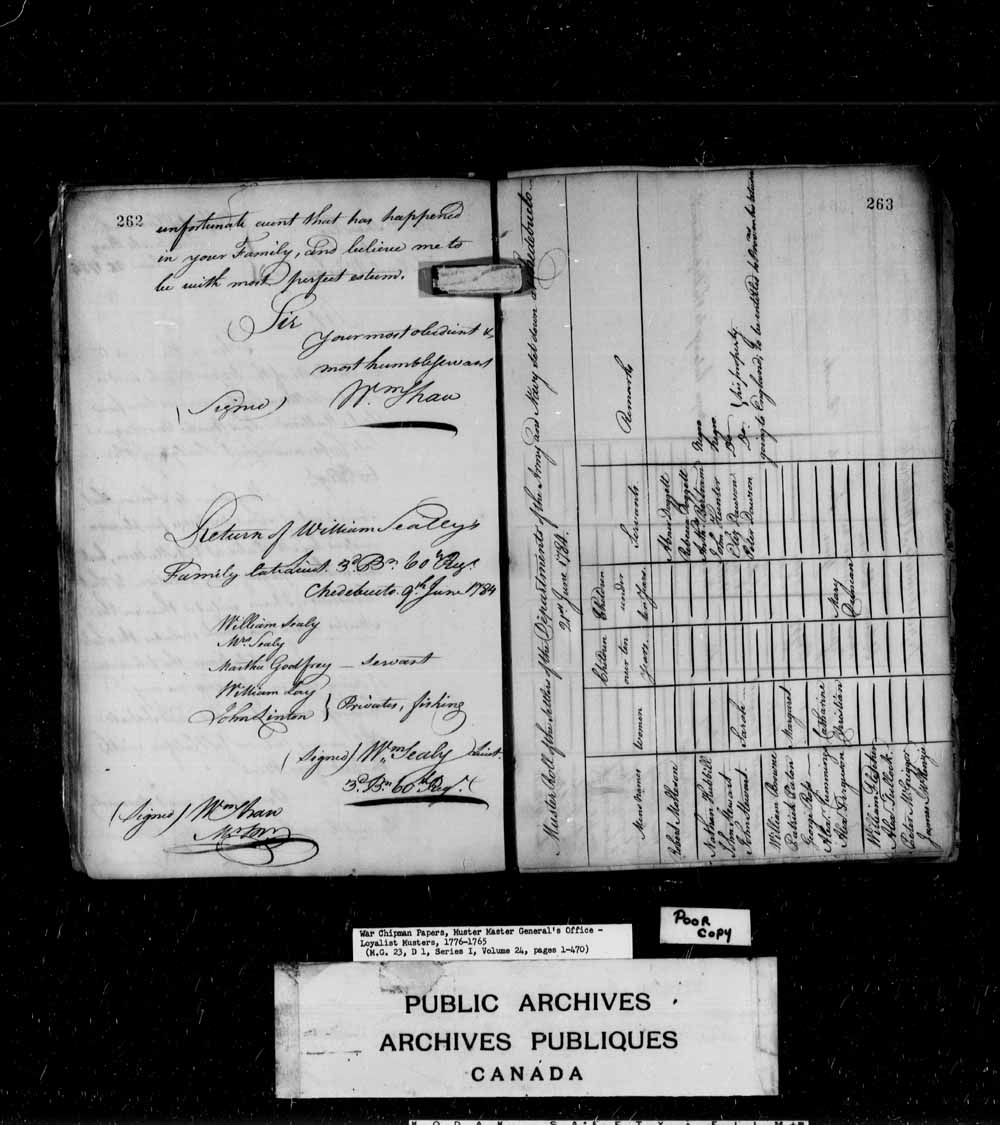 262
unfortunate event that has happened
in your Family, and believe me to
be with most perfect esteem.
Sir
your most obedient &
most humble Servant
(Signed) Wm Shaw
Return of William Sealey's
Family late Lieut. 3d Bn. 60th Regt
Chedebucto 9th June 1784
William Sealy
Mrs Sealy
Martha Godfrey — Servant
William Loy
John Linton } Privates, fishing
(Signed) Wm Sealy Lieut.
3d Bn 60th Regt.
(Signed) Wm Shaw
263
Muster Roll of the Settlers of the Departments of the Army and Navy set down at Chedebucto
21st June 1784.
Mens names
Women
Children over ten years.
Children under ten years.
Servants
Remarks
Robert
Abner Doggett
Rebecca Doggett
Nathan Hubbill
Bertram Negro
John Stewart
John Hunter Negro
John Stewart Sarah
Dawson Do.
Peter Dawson Do. } his property.
going to England, to be entitled to Provision as he returns
William Browne
Patrick Paton Margaret
George Ross
Alexr. Cumming Catharine
Alexr. Ferguson Christian Mary
William Stephen
Alexr. Tulloch
Peter McGrigor
James McKenzie
War Chipman Papers, Muster Master General's Office -
Loyalist Musters, 1776-1765
(M.G. 23, D 1, Series I, Volume 24, pages 1-470)
POOR
COPY
PUBLIC ARCHIVES
ARCHIVES PUBLIQUES
CANADA